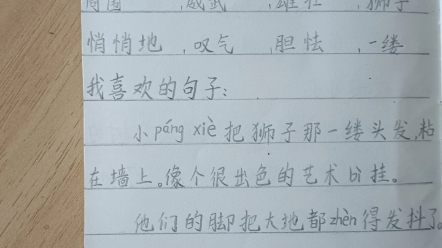 周围 ,威武 ,雄壮 ,狮子
悄悄地 ,叹气 ,胆怯 ,一缕
我喜欢的句子:
小páng xiè把狮子那一缕头发,粘
在墙上。像个很出色的艺术bì挂。
他们的脚把大地都zhèn得发抖了。